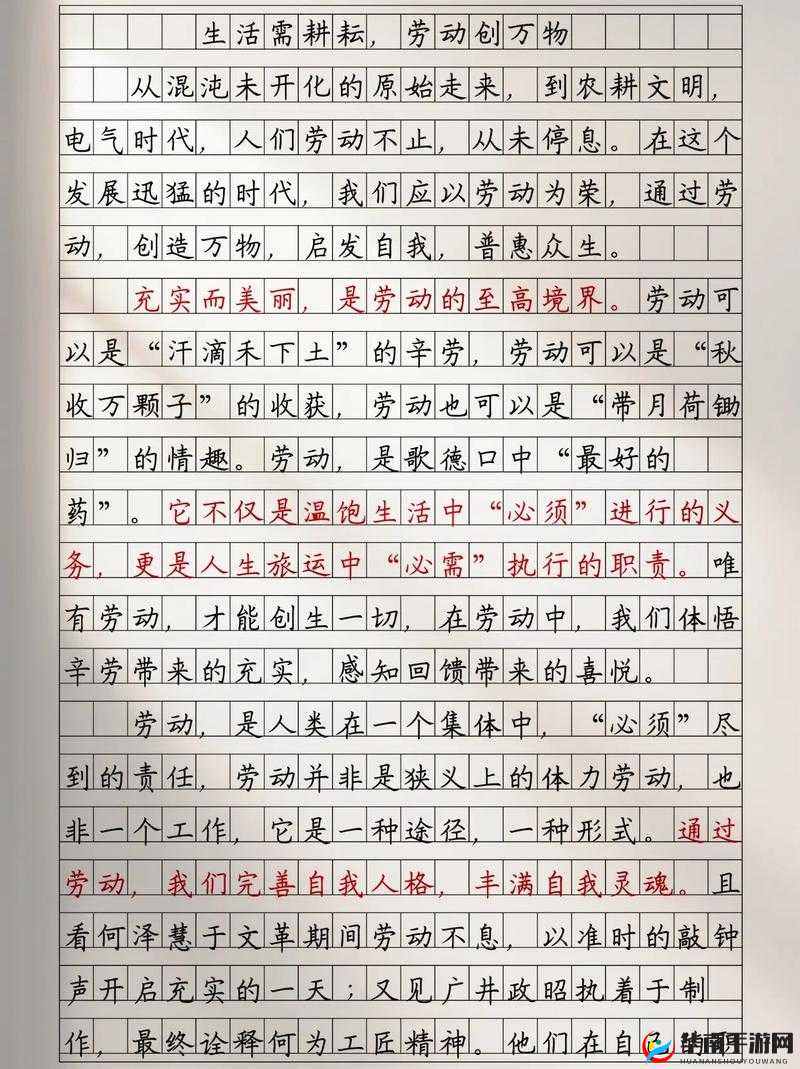 生活需耕耘，劳动创万物
从混沌未开化的原始走来，到农耕文明，
电气时代，人们劳动不止，从未停息。在这个
发展迅猛的时代，我们应以劳动为荣，通过劳
动，创造万物，启发自我，普惠众生。
充实而美丽，是劳动的至高境界。劳动可
以是“汗滴禾下土”的辛劳，劳动可以是“秋
收万颗子”的收获，劳动也可以是“带月荷锄
归”的情趣。劳动，是歌德口中“最好的
药”。它不仅是温饱生活中“必须”进行的义
务，更是人生旅运中“必需”执行的职责。唯
有劳动，才能创生一切，在劳动中，我们体悟
辛劳带来的充实，感知回馈带来的喜悦。
劳动，是人类在一个集体中，“必须”尽
到的责任，劳动并非是狭义上的体力劳动，也
非一个工作，它是一种途径，一种形式。通过
劳动，我们完善自我人格，丰满自我灵魂。且
看何泽慧于文革期间劳动不息，以准时的敲钟
声开启充实的一天；又见广井政昭执着于制
作，最终诠释何为工匠精神。他们在自己
华南手游网
HUANANSHOUYOUWANG